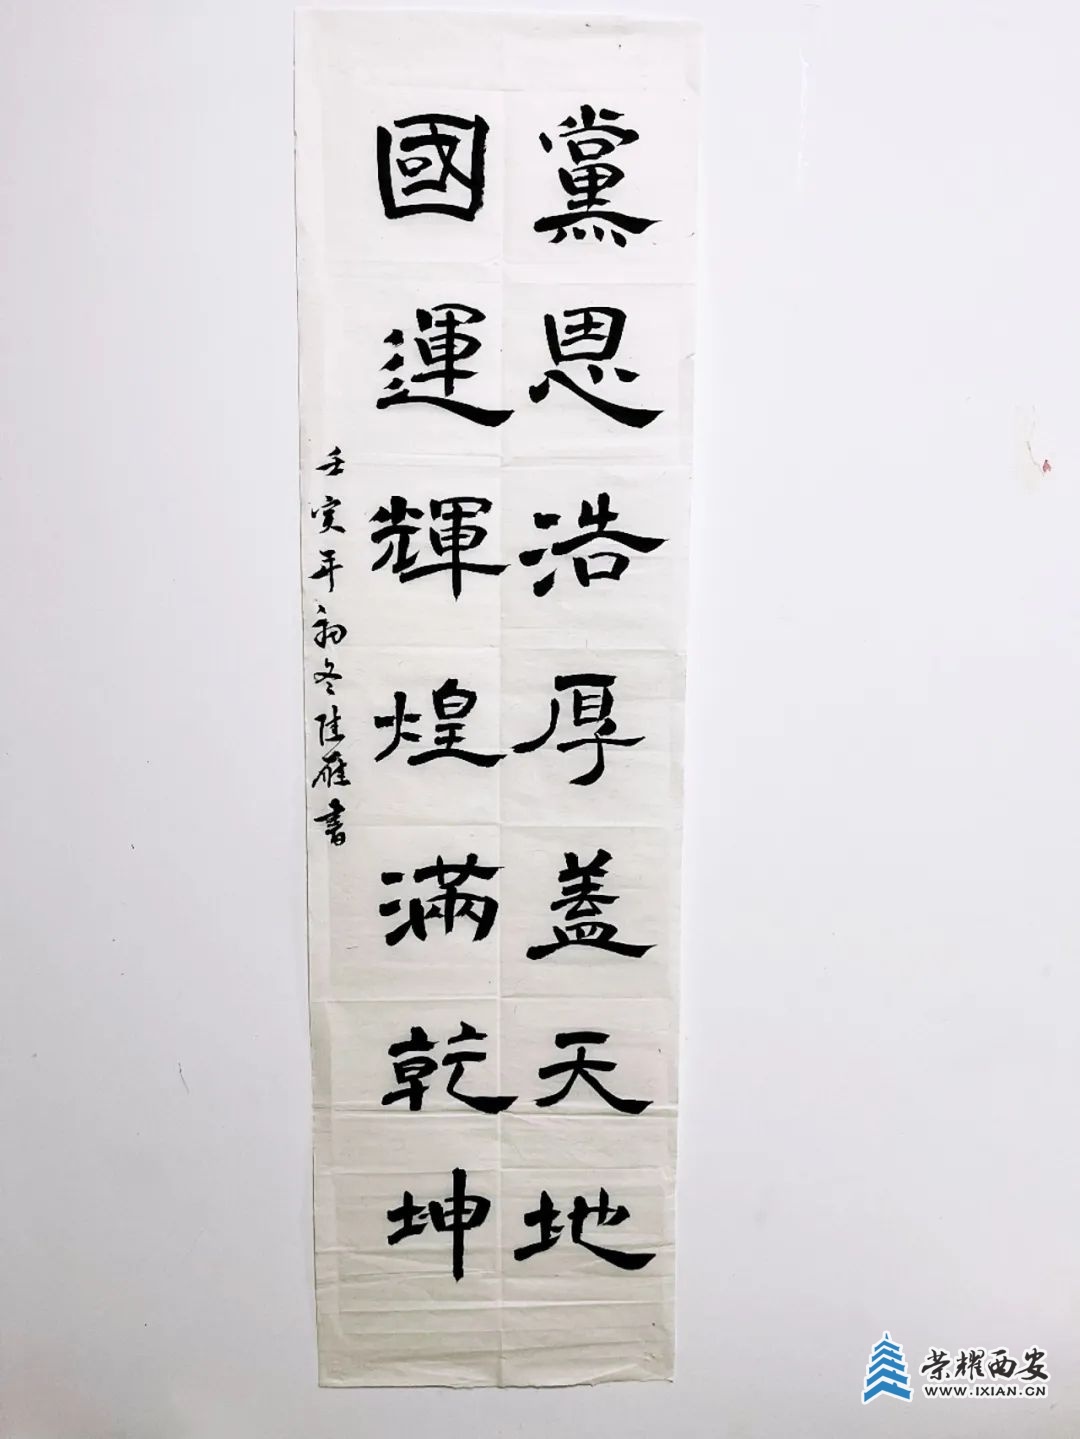 黨恩浩厚蓋天地
國運輝煌滿乾坤
壬寅年初冬陆雁書
荣耀西安
WWW.IXIAN.CN